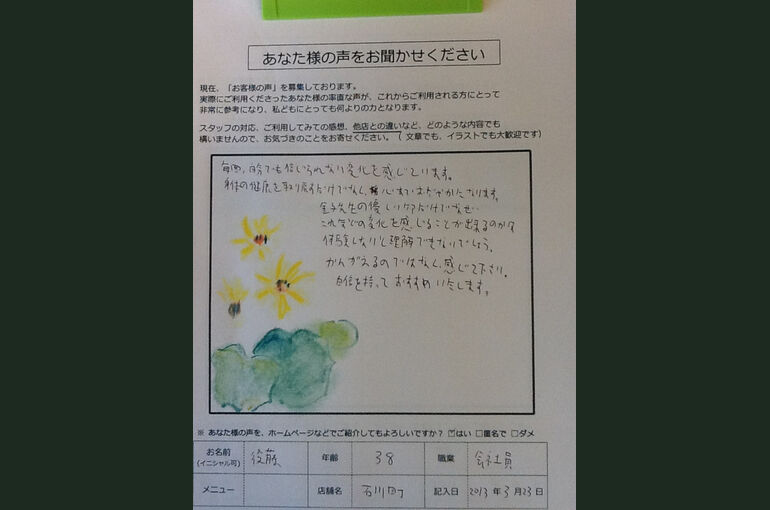 あなた様の声をお聞かせください
現在、「お客様の声」を募集しております。
実際にご利用くださったあなた様の率直な声が、これからご利用される方にとって
非常に参考になり、私どもにとっても何よりの力となります。
スタッフの対応、ご利用してみての感想、他店との違いなど、どのような内容でも
構いませんので、お気づきのことをお寄せください。（ 文章でも、イラストでも大歓迎です）
毎回、自分でも信じられない変化を感じています。
身体の健康を取り戻すだけでなく、心まで おだやかになります。
金子先生の優しいケアだけでなぜ…
これまでの変化を感じることが出来るのか?
体験しないと理解できないでしょう。
かんがえるのではなく、感じて下さい。
自信を持って おすすめ いたします。
※ あなた様の声を、ホームページなどでご紹介してもよろしいですか？ ☑はい □匿名で □ダメ
お名前 (イニシャル可) 後藤 年齢 38 職業 会社員
メニュー 店舗名 石川町 記入日 2013 年 3 月 23 日